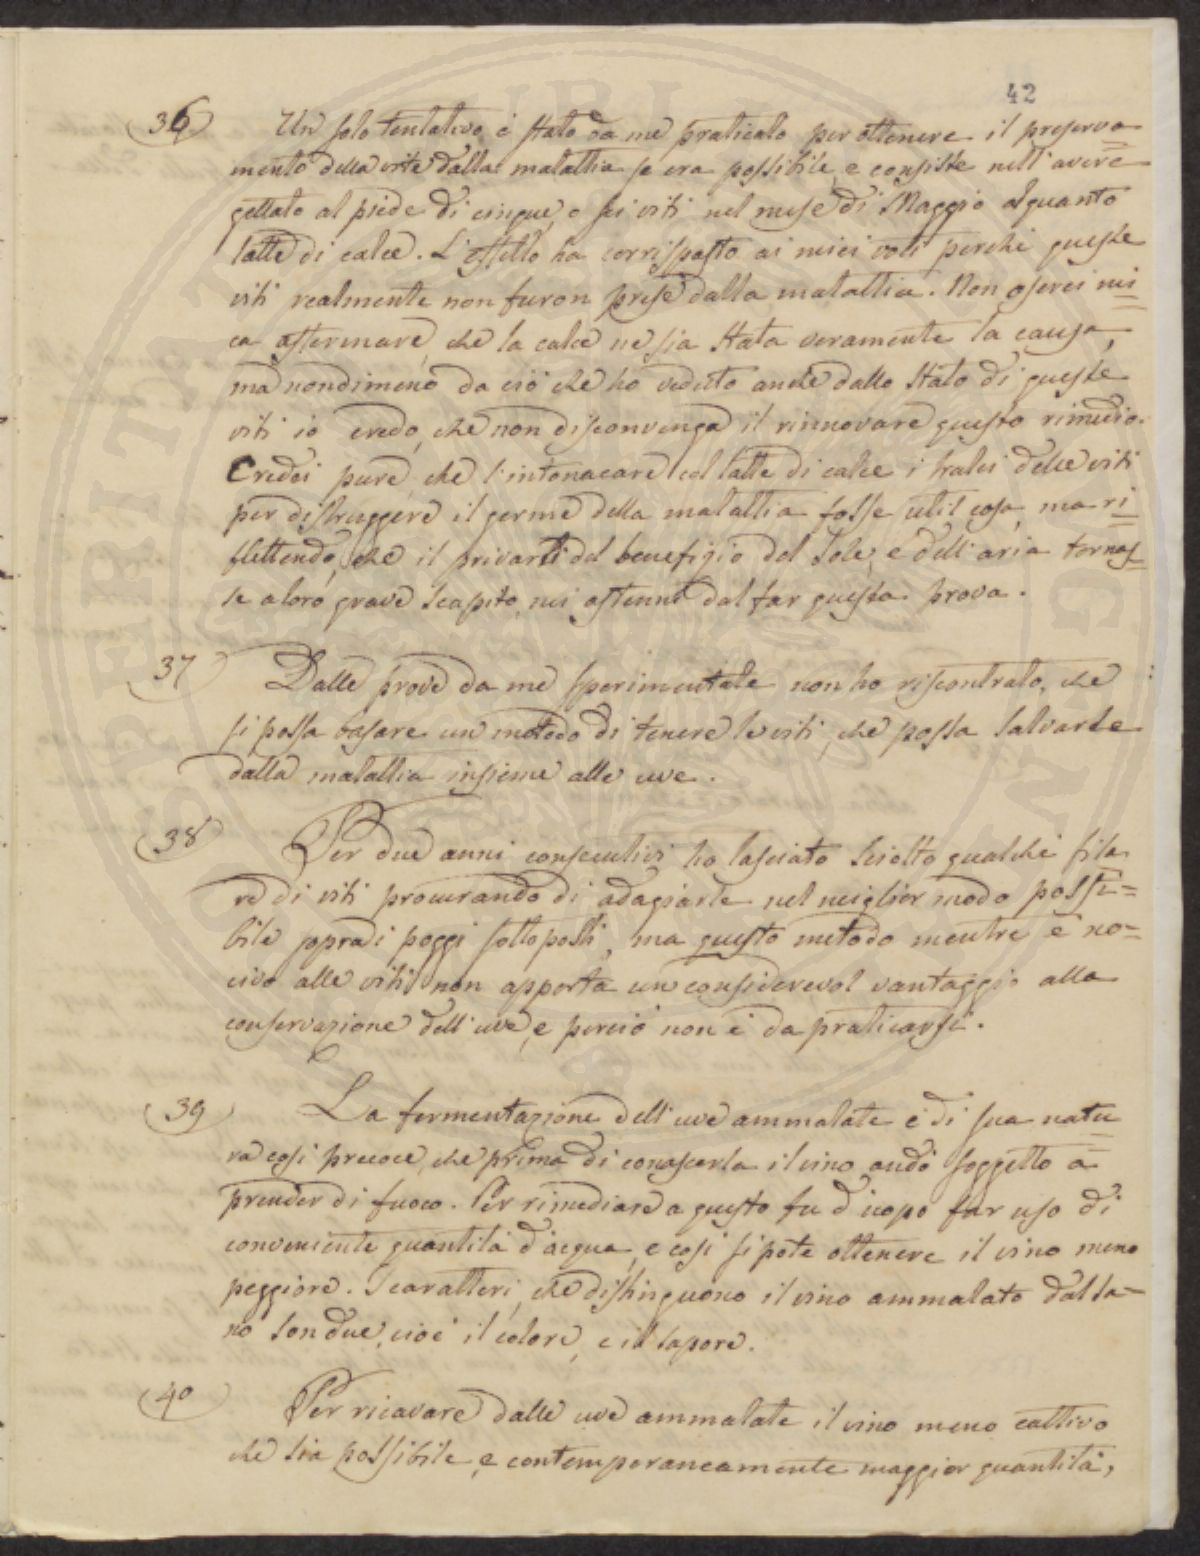 42
36 Un solo tentativo è stato da me praticato per ottenere il preserva=
mento della vite dalla malattia se era possibile, e consiste nell'avere
gettato al piede di cinque, o sei viti nel mese di Maggio alquanto
latte di calce. L'effetto ha corrisposto ai miei voti perchè queste
viti realmente non furon prese dalla malattia. Non oserei mi=
ca affermare, che la calce ne sia stata veramente la causa,
ma nondimeno da ciò che ho veduto anche dallo stato di queste
viti io credo, che non disconvenga il rinnovare questo rimedio.
Credei pure, che l'intonacare col latte di calce i tralci delle viti
per distruggere il germe della malattia fosse util cosa, ma ri=
flettendo, che il privarli del benefizio del Sole, e dell'aria tornas=
se a loro grave scapito, mi astenni dal far questa prova.
37 Dalle prove da me sperimentate non ho riscontrato, che
si possa basare un metodo di tenere le viti, che possa salvarle
dalla malattia insieme alle uve.
38 Per due anni consecutivi ho lasciato sciolto qualche fila
re di viti procurando di adagiarle nel miglior modo possi=
bile sopra i poggi sottoposti, ma questo metodo mentre è no=
civo alle viti non apporta un considerevol vantaggio alla
conservazione dell'uve, e perciò non è da praticarsi.
39 La fermentazione dell'uve ammalate è di sua natu=
ra così precoce, che prima di conoscerla il vino andò soggetto a
prender di fuoco. Per rimediare a questo fu d'uopo far uso di
conveniente quantità d'acqua, e così si potè ottenere il vino meno
peggiore. I caratteri, che distinguono il vino ammalato dal sa=
no son due, cioè il colore, e il sapore.
40 Per ricavare dalle uve ammalate il vino meno cattivo
che sia possibile, e contemporaneamente maggior quantità,